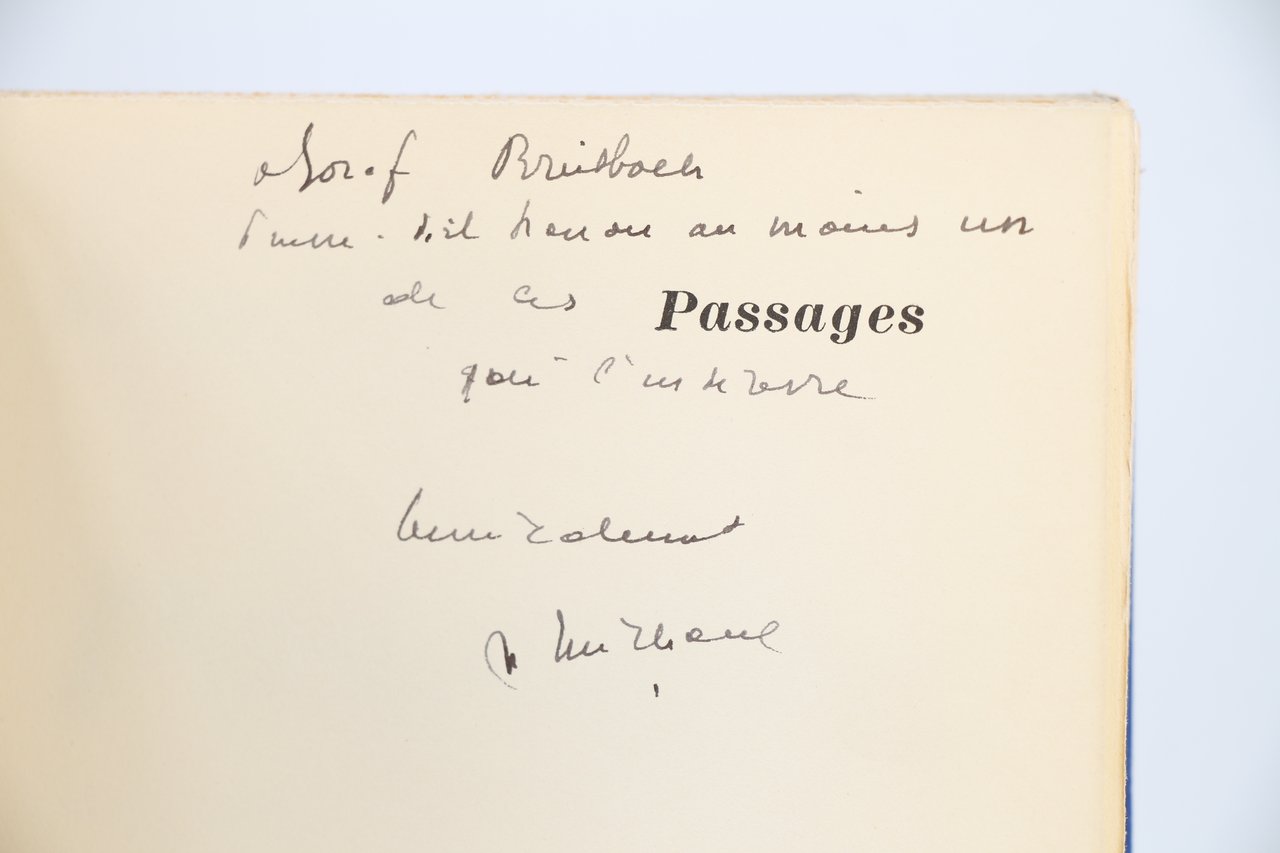 à Josef Breitbach
Puisse-t-il trouver au moins un
de ces Passages
qui l'intéresse
amicalement
H Michaux